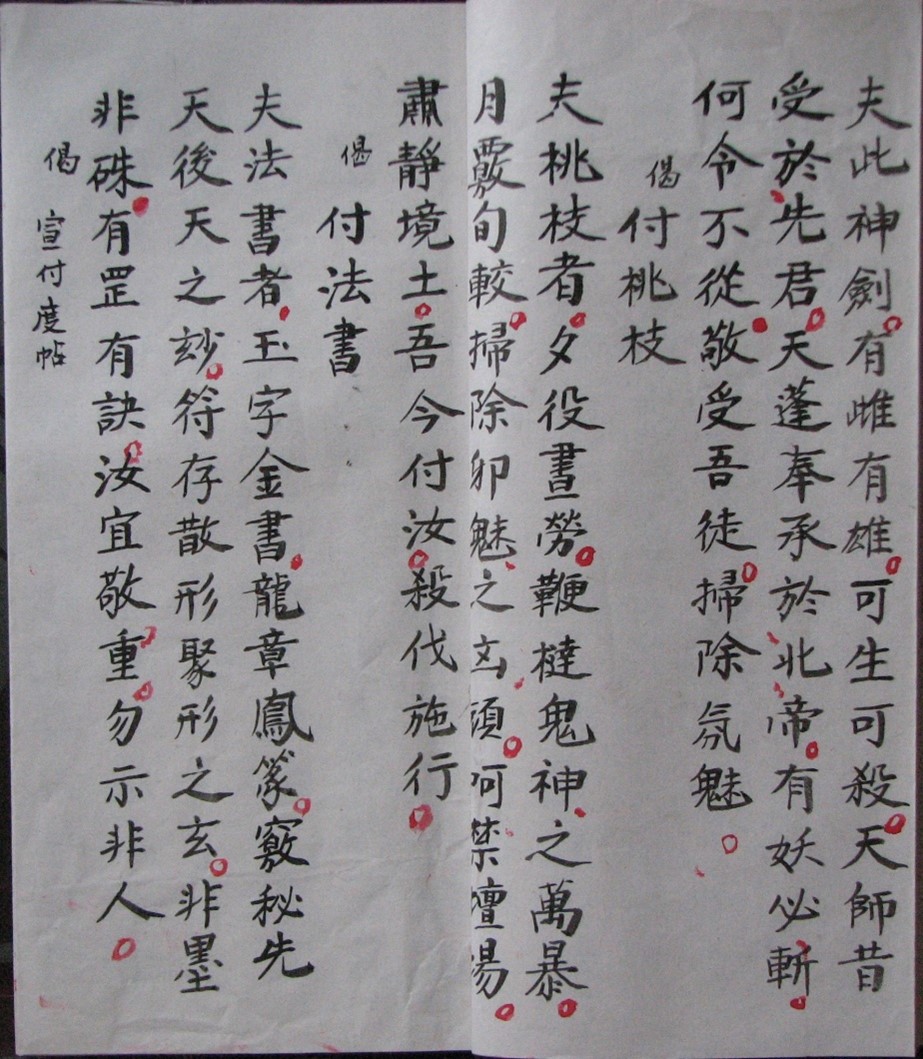 夫此神劍有雌有雄可生可殺天師昔
受於先君天蓬奉承於北帝有妖必斬
何令不從敬受吾徒掃除氛魅
偈 付桃枝
夫桃枝者夕役晝勞鞭撻鬼神之萬暴
月覈旬較掃除卯魅之玄頭呵禁壇場
肅靜境土吾今付汝殺伐施行
偈 付法書
夫法書者玉字金書龍章鳳篆竅秘先
天後天之玅符存散形聚形之玄非墨
非硃有罡有訣汝宜敬重勿示非人
偈 宣付度帖